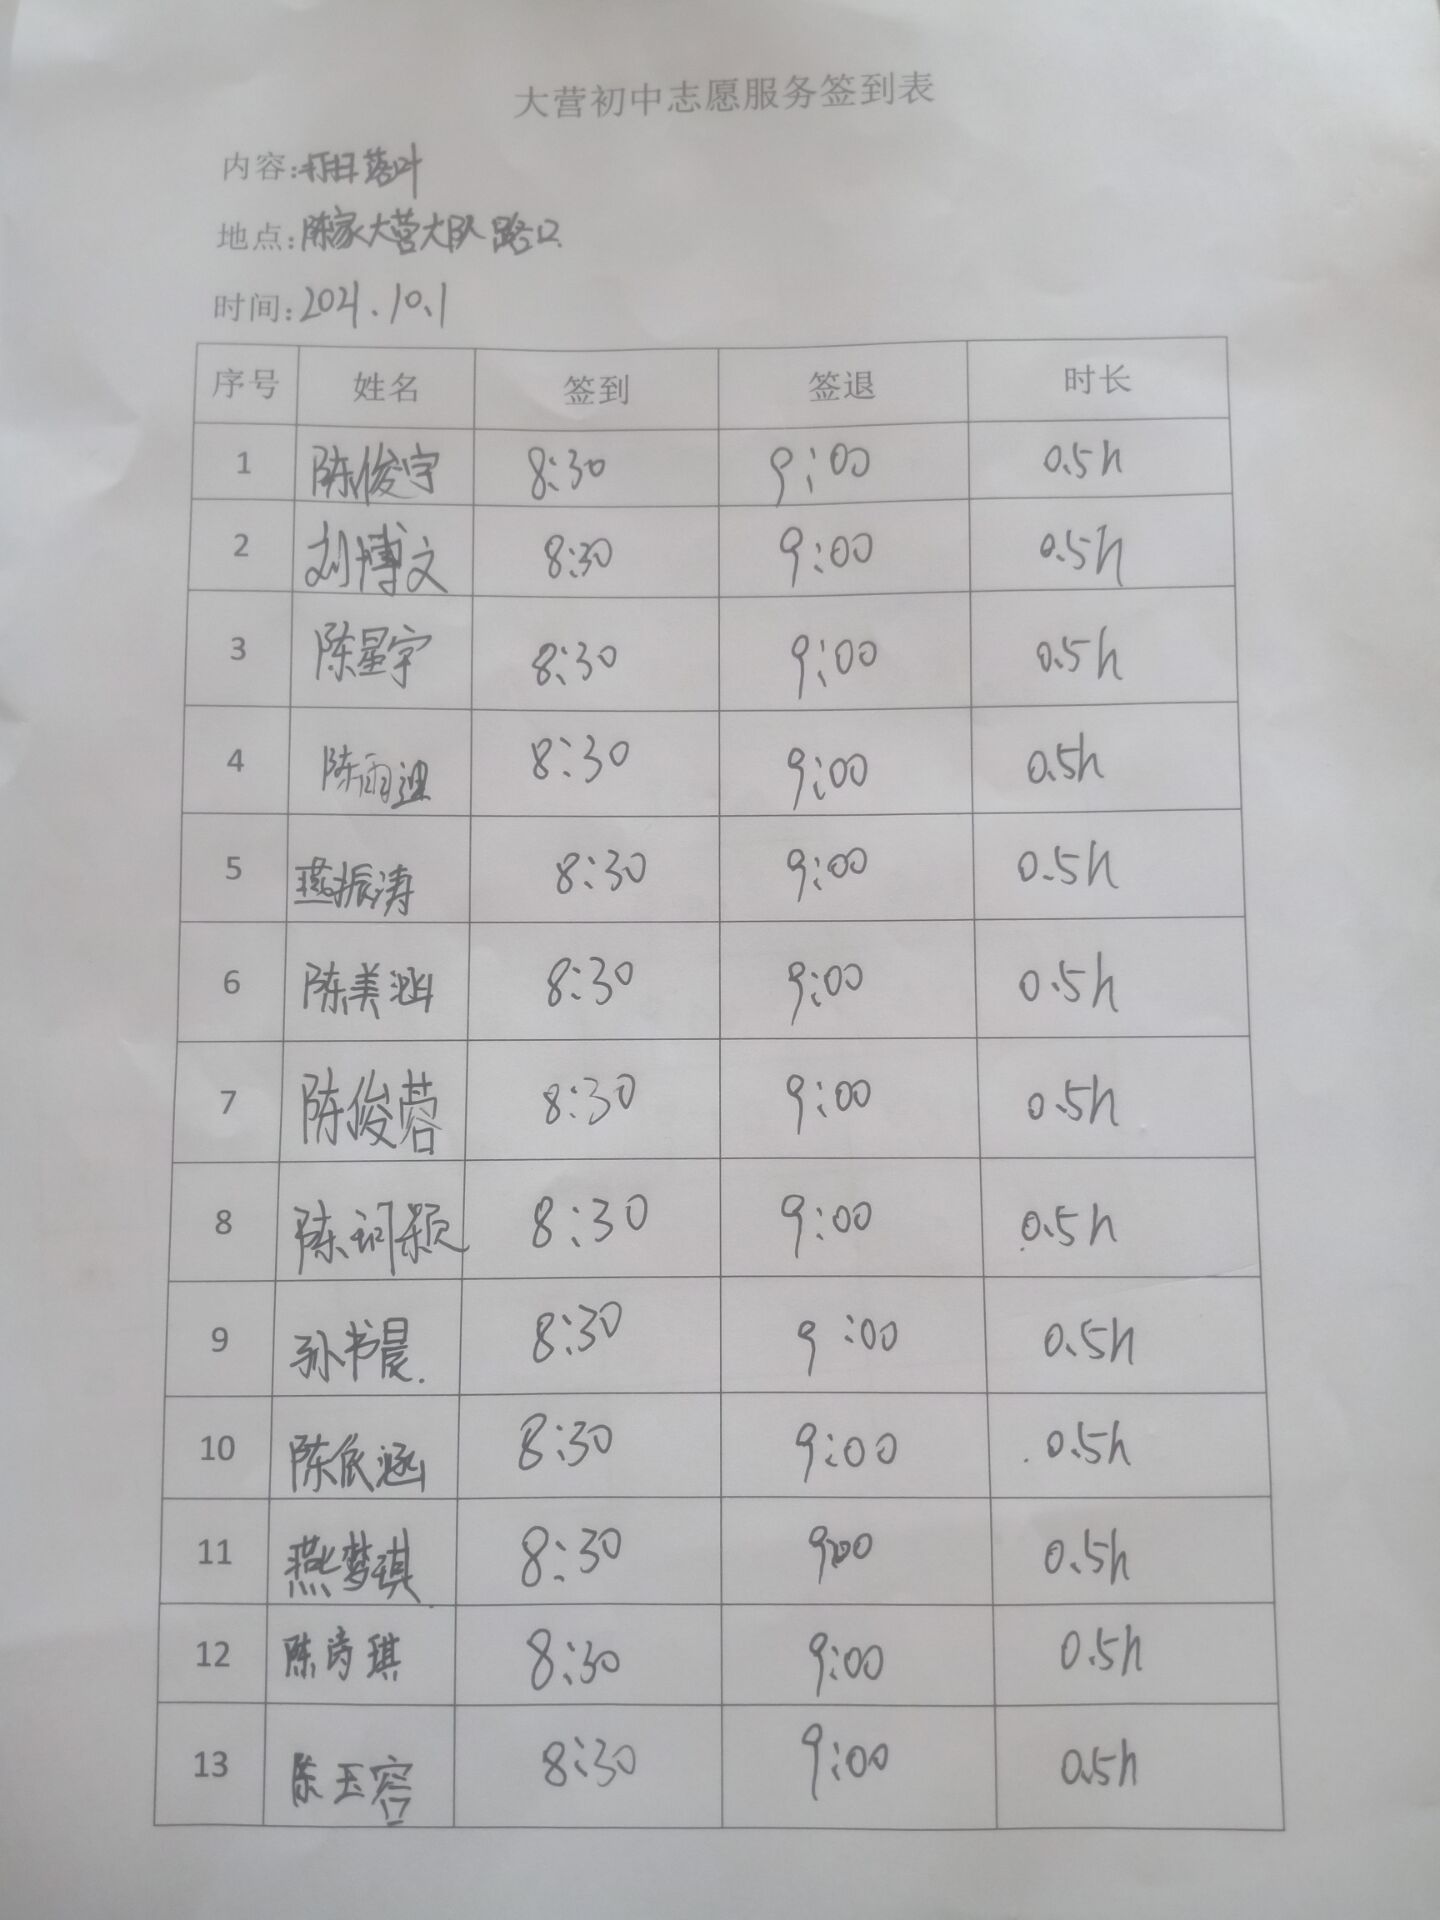 大营初中志愿服务签到表
内容:打扫落叶
地点:陈家大营大队路口
时间:2021.10.1
序号 姓名 签到 签退 时长
1 陈俊宇 8:30 9:00 0.5h
2 刘博文 8:30 9:00 0.5h
3 陈星宇 8:30 9:00 0.5h
4 陈雨迪 8:30 9:00 0.5h
5 燕振涛 8:30 9:00 0.5h
6 陈美涵 8:30 9:00 0.5h
7 陈俊蓉 8:30 9:00 0.5h
8 陈珂颖 8:30 9:00 0.5h
9 孙书晨. 8:30 9:00 0.5h
10 陈依涵 8:30 9:00 0.5h
11 燕梦琪 8:30 9:00 0.5h
12 陈诗琪 8:30 9:00 0.5h
13 陈玉容 8:30 9:00 0.5h